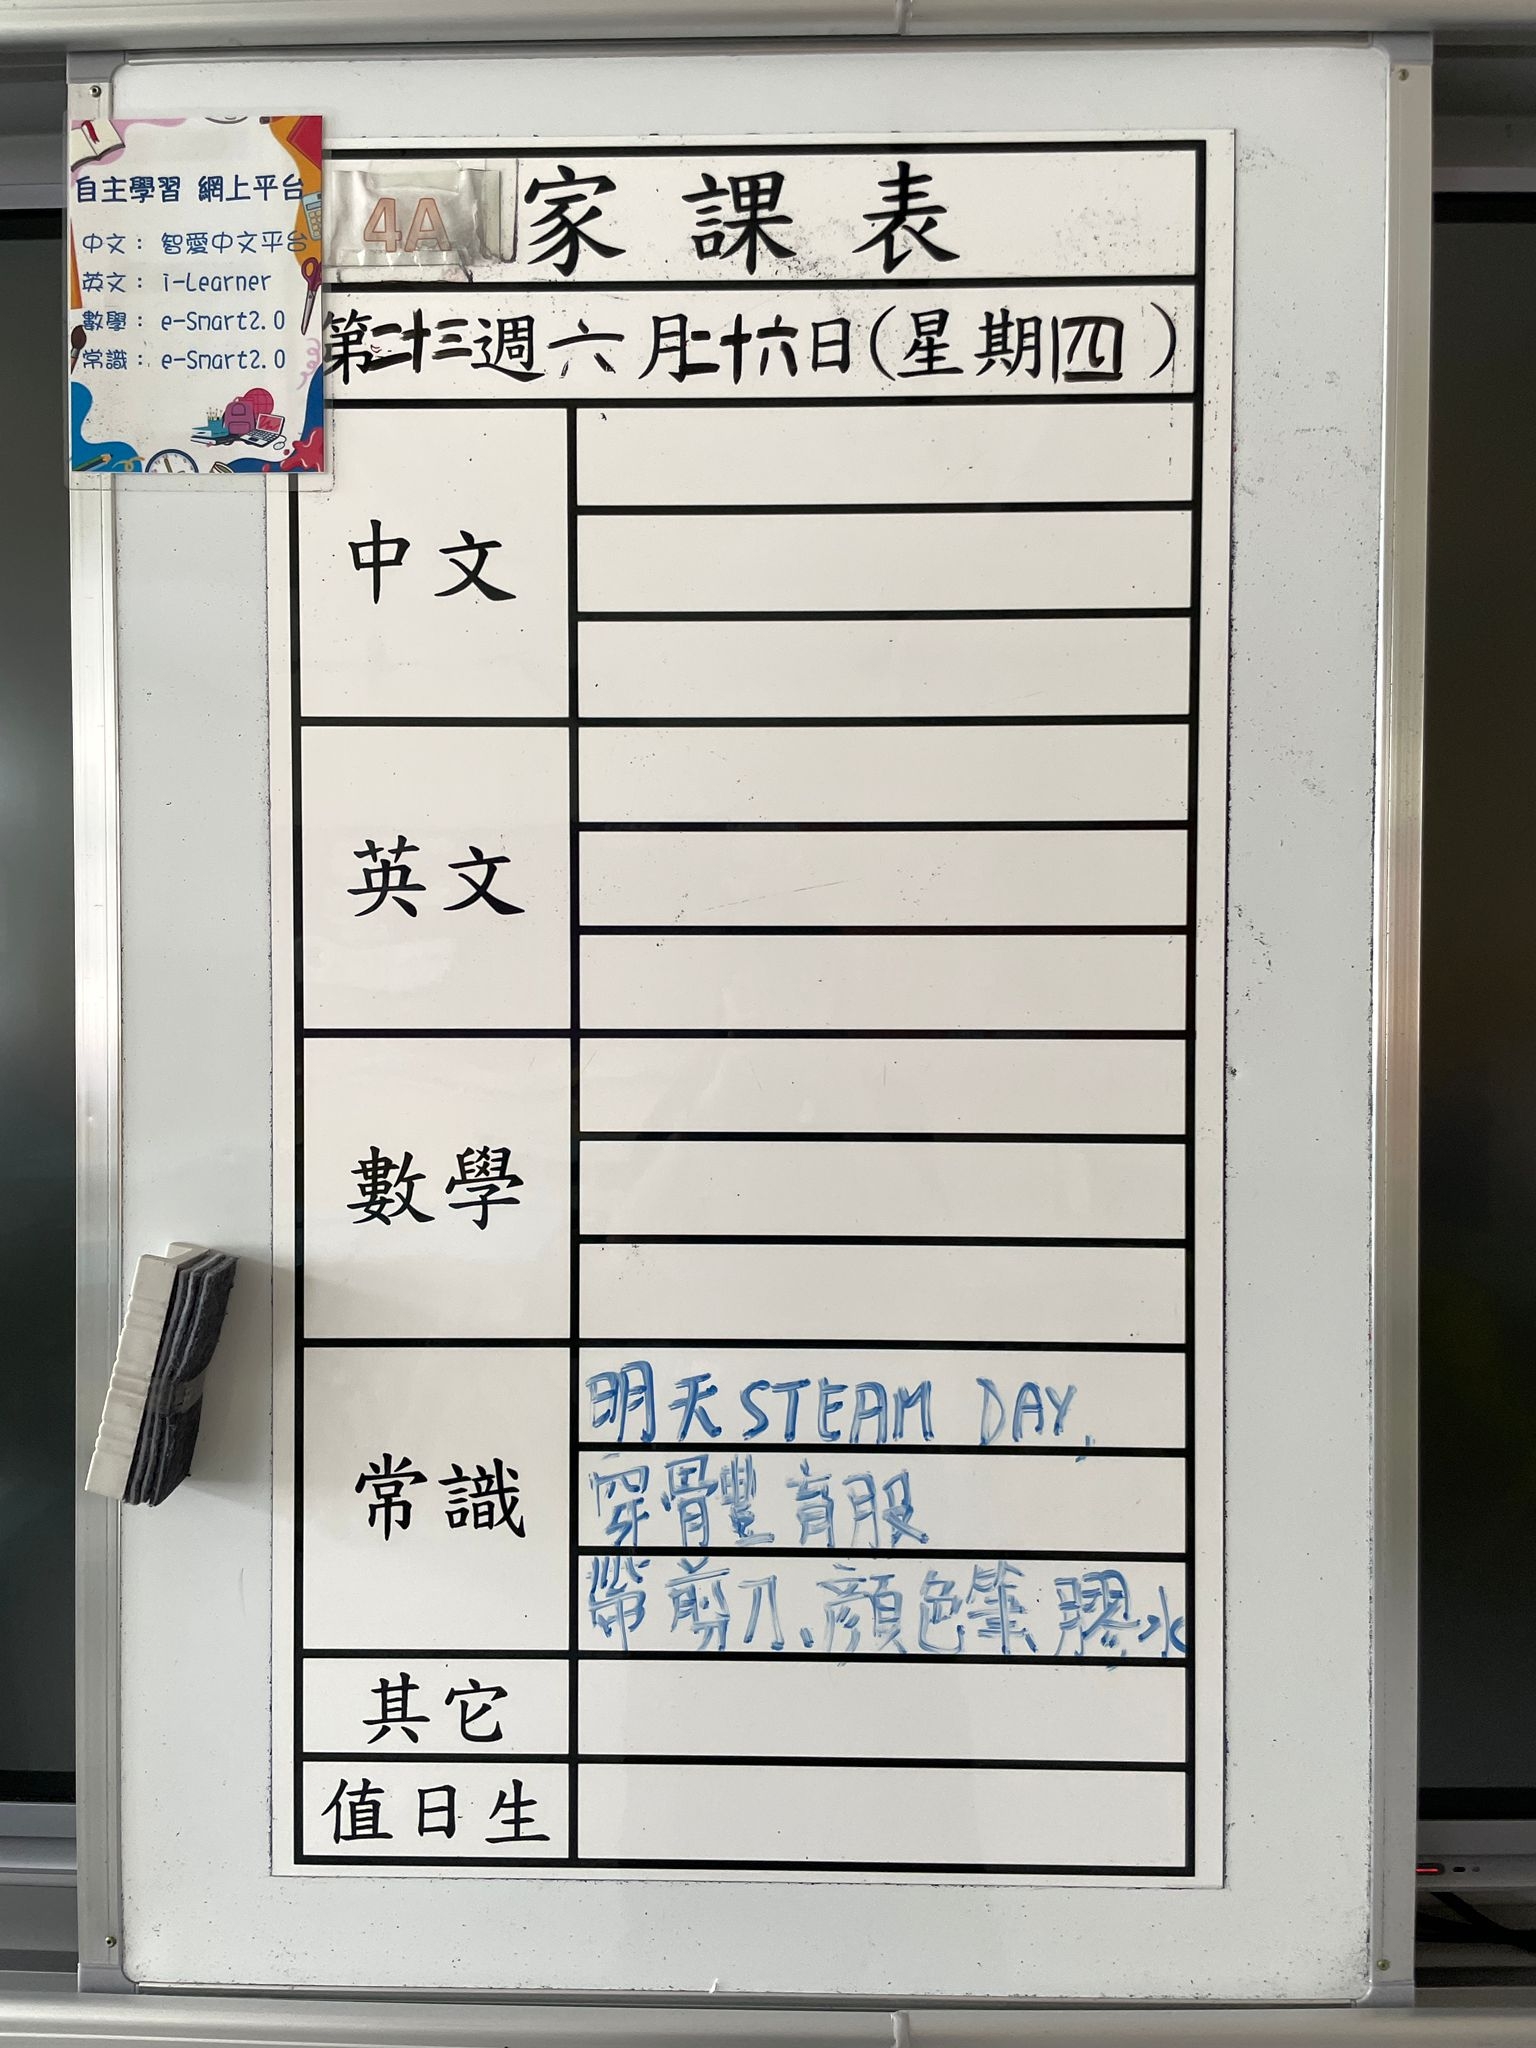 自主學習 網上平台
中文： 智愛中文平台
英文： i-Learner
數學： e-Smart2.0
常識： e-Smart2.0
4A 家課表
第二十三週六月二十六日(星期四)
中文
英文
數學
常識
明天STEAM DAY,
穿體育服
帶剪刀、顏色筆、膠水
其它
值日生